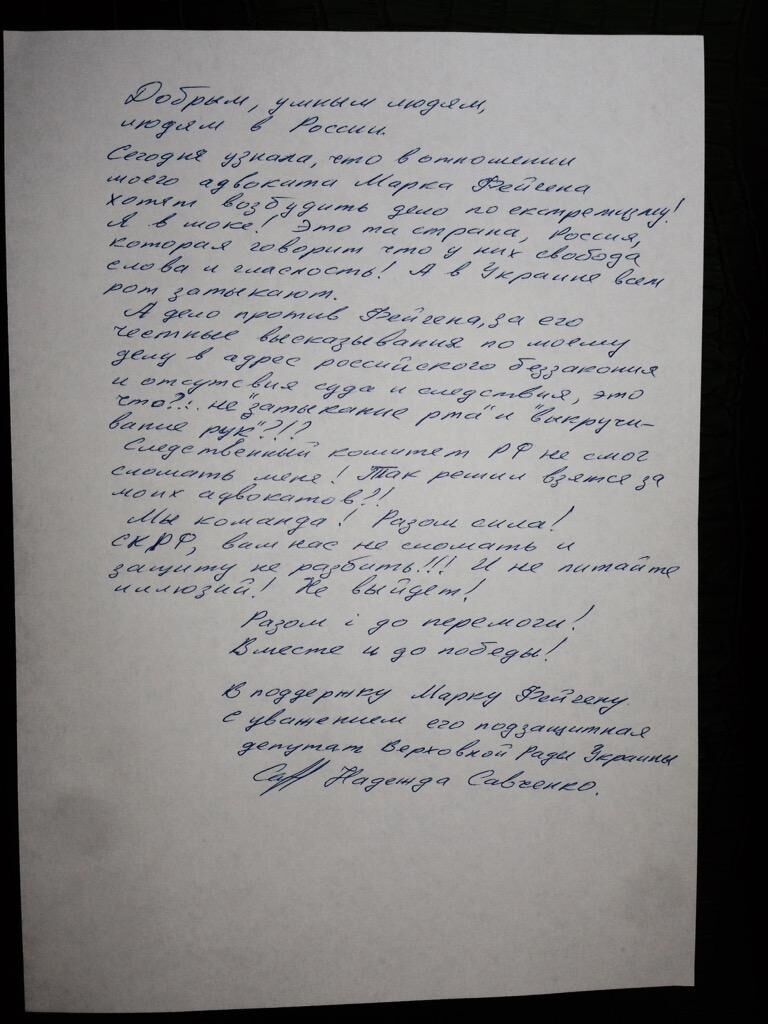 Добрым, умным людям,
людям в России.
Сегодня узнала, что в отношении
моего адвоката Марка Фейгена
хотят возбудить дело по екстремизму!
Я в шоке! Это та страна, Россия,
которая говорит что у них свобода
слова и гласность! А в Украине всем
рот затыкают.
А дело против Фейгена, за его
честные высказывания по моему
делу в адрес российского беззакония
и отсутсвия суда и следствия, это
что?!.. не "затыкание рта" и "выкручи-
вание рук"?!?
Следственный комитет РФ не смог
сломать мене! Так решил взятся за
моих адвокатов?!
Мы команда! Разом сила!
СКРФ, вам нас не сломать и
защиту не разбить!!! И не питайте
иллюзий! Не выйдет!
Разом і до перемоги!
Вместе и до победы!
В поддержку Марку Фейгену
с уважением его подзащитная
депутат Верховной Рады Украины
Надежда Савченко.